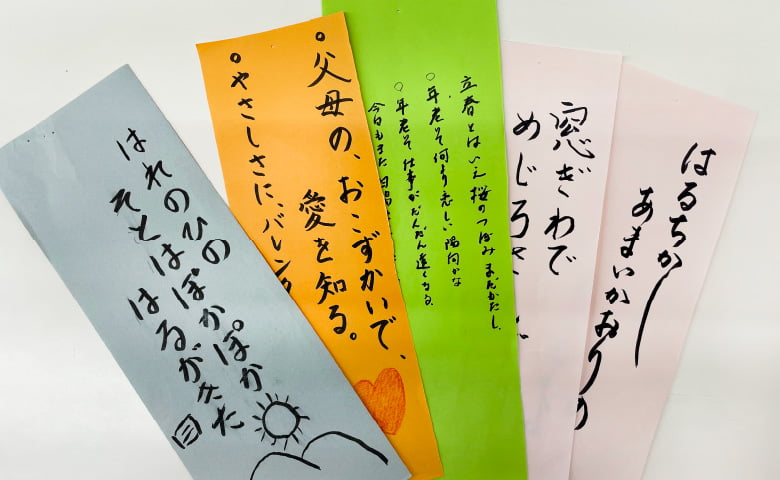 はるちかし
あまいかおりの
窓ぎわで
めじろ
立春とはいえ桜のつぼみまだかたし、
○年老て何より恋しい陽向かな
○年老て仕事がだんだん遅くなる
今日もまた
○父母の、おこずかいで、
愛を知る。
○やさしさに、バレン
はれのひの
そとはぽかぽか
はるがきた